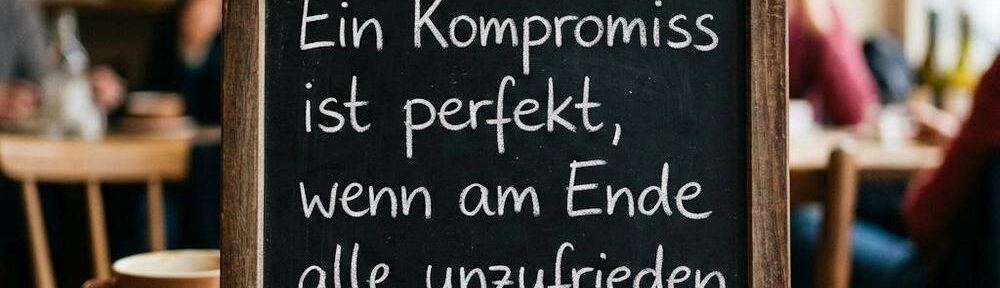 Ein Kompromiss
ist perfekt,
wenn am Ende
alle unzufrieden